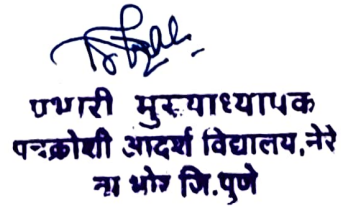 प्रभारी मुख्याध्यापक
पंचक्रोशी आदर्श विद्यालय, नेरे
ता भोर जि. पुणे